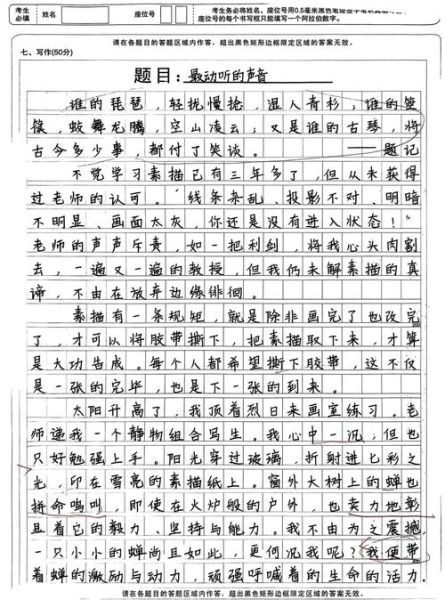 考生必填
姓名
座位号
考生务必将姓名、座位号用0.5毫米黑色
座位号的每个书写框只能填写一个阿拉伯数字。
请在各题目的答题区域内作答，超出黑色矩形边框限定区域的答案无效。
七、写作(50分)
题目：最动听的声音
谁的琵琶，轻拢慢捻，湿人青衫；谁的箜
篌，蛟舞龙腾，空山凌云；又是谁的古琴，将
古今多少事，都付了笑谈。 ——题记
不觉学习素描已有三年多了，但从未获得
过老师的认可。“线条杂乱、投影不对、明暗
不明显、画面太灰，你还是没有进入状态！”
老师的声声斥责，如一把利剑，将我心头肉割
去，一遍又一遍的教授，但我仍未解素描的真
谛，不由在放弃边缘徘徊。
素描有一条规矩，就是除非画完了也改完
了，才可以将胶带撕下，把素描取下来，才算
是大功告成。每个人都希望撕下胶带，这不仅
是一张的完毕，也是下一张的到来。
太阳升高了，我顶着烈日来画室练习。老
师递我一个静物组合写生。我心中一沉，但也
只好勉强上手。阳光穿过玻璃，折射进七彩之
光，印在雪亮的素描纸上。窗外大树上的蝉也
拼命鸣叫，即使在火炉般的户外，也卖力地彰
显着它的毅力、坚持与能力。我不由为之震撼，
一只小小的蝉尚且如此，更何况我呢？我便带
着蝉的激励与动力，顽强呼喊着的生命的活力。
请在各题目的答题区域内作答，超出黑色矩形边框限定区域的答案无效。